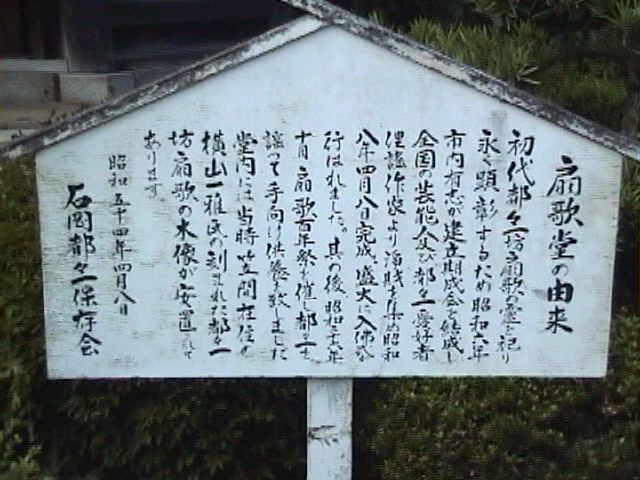 扇歌堂の由来
初代都々一坊扇歌の霊を祀り
永く顕彰するため昭和六年
市内有志が建立期成会を結成し
全国の芸能人及び都々一愛好者
俚謡作家より浄財を集め昭和
八年四月八日完成、盛大に入佛式が
行はれました。其の後昭和十六年
十月扇歌百年祭を催し都々一を
謡って手向け供養を致しました
堂内には当時笠間在住の
横山一雅氏の刻まれた都々一
坊扇歌の木像が安置されて
あります。
昭和五十四年四月八日
石岡都々一保存会